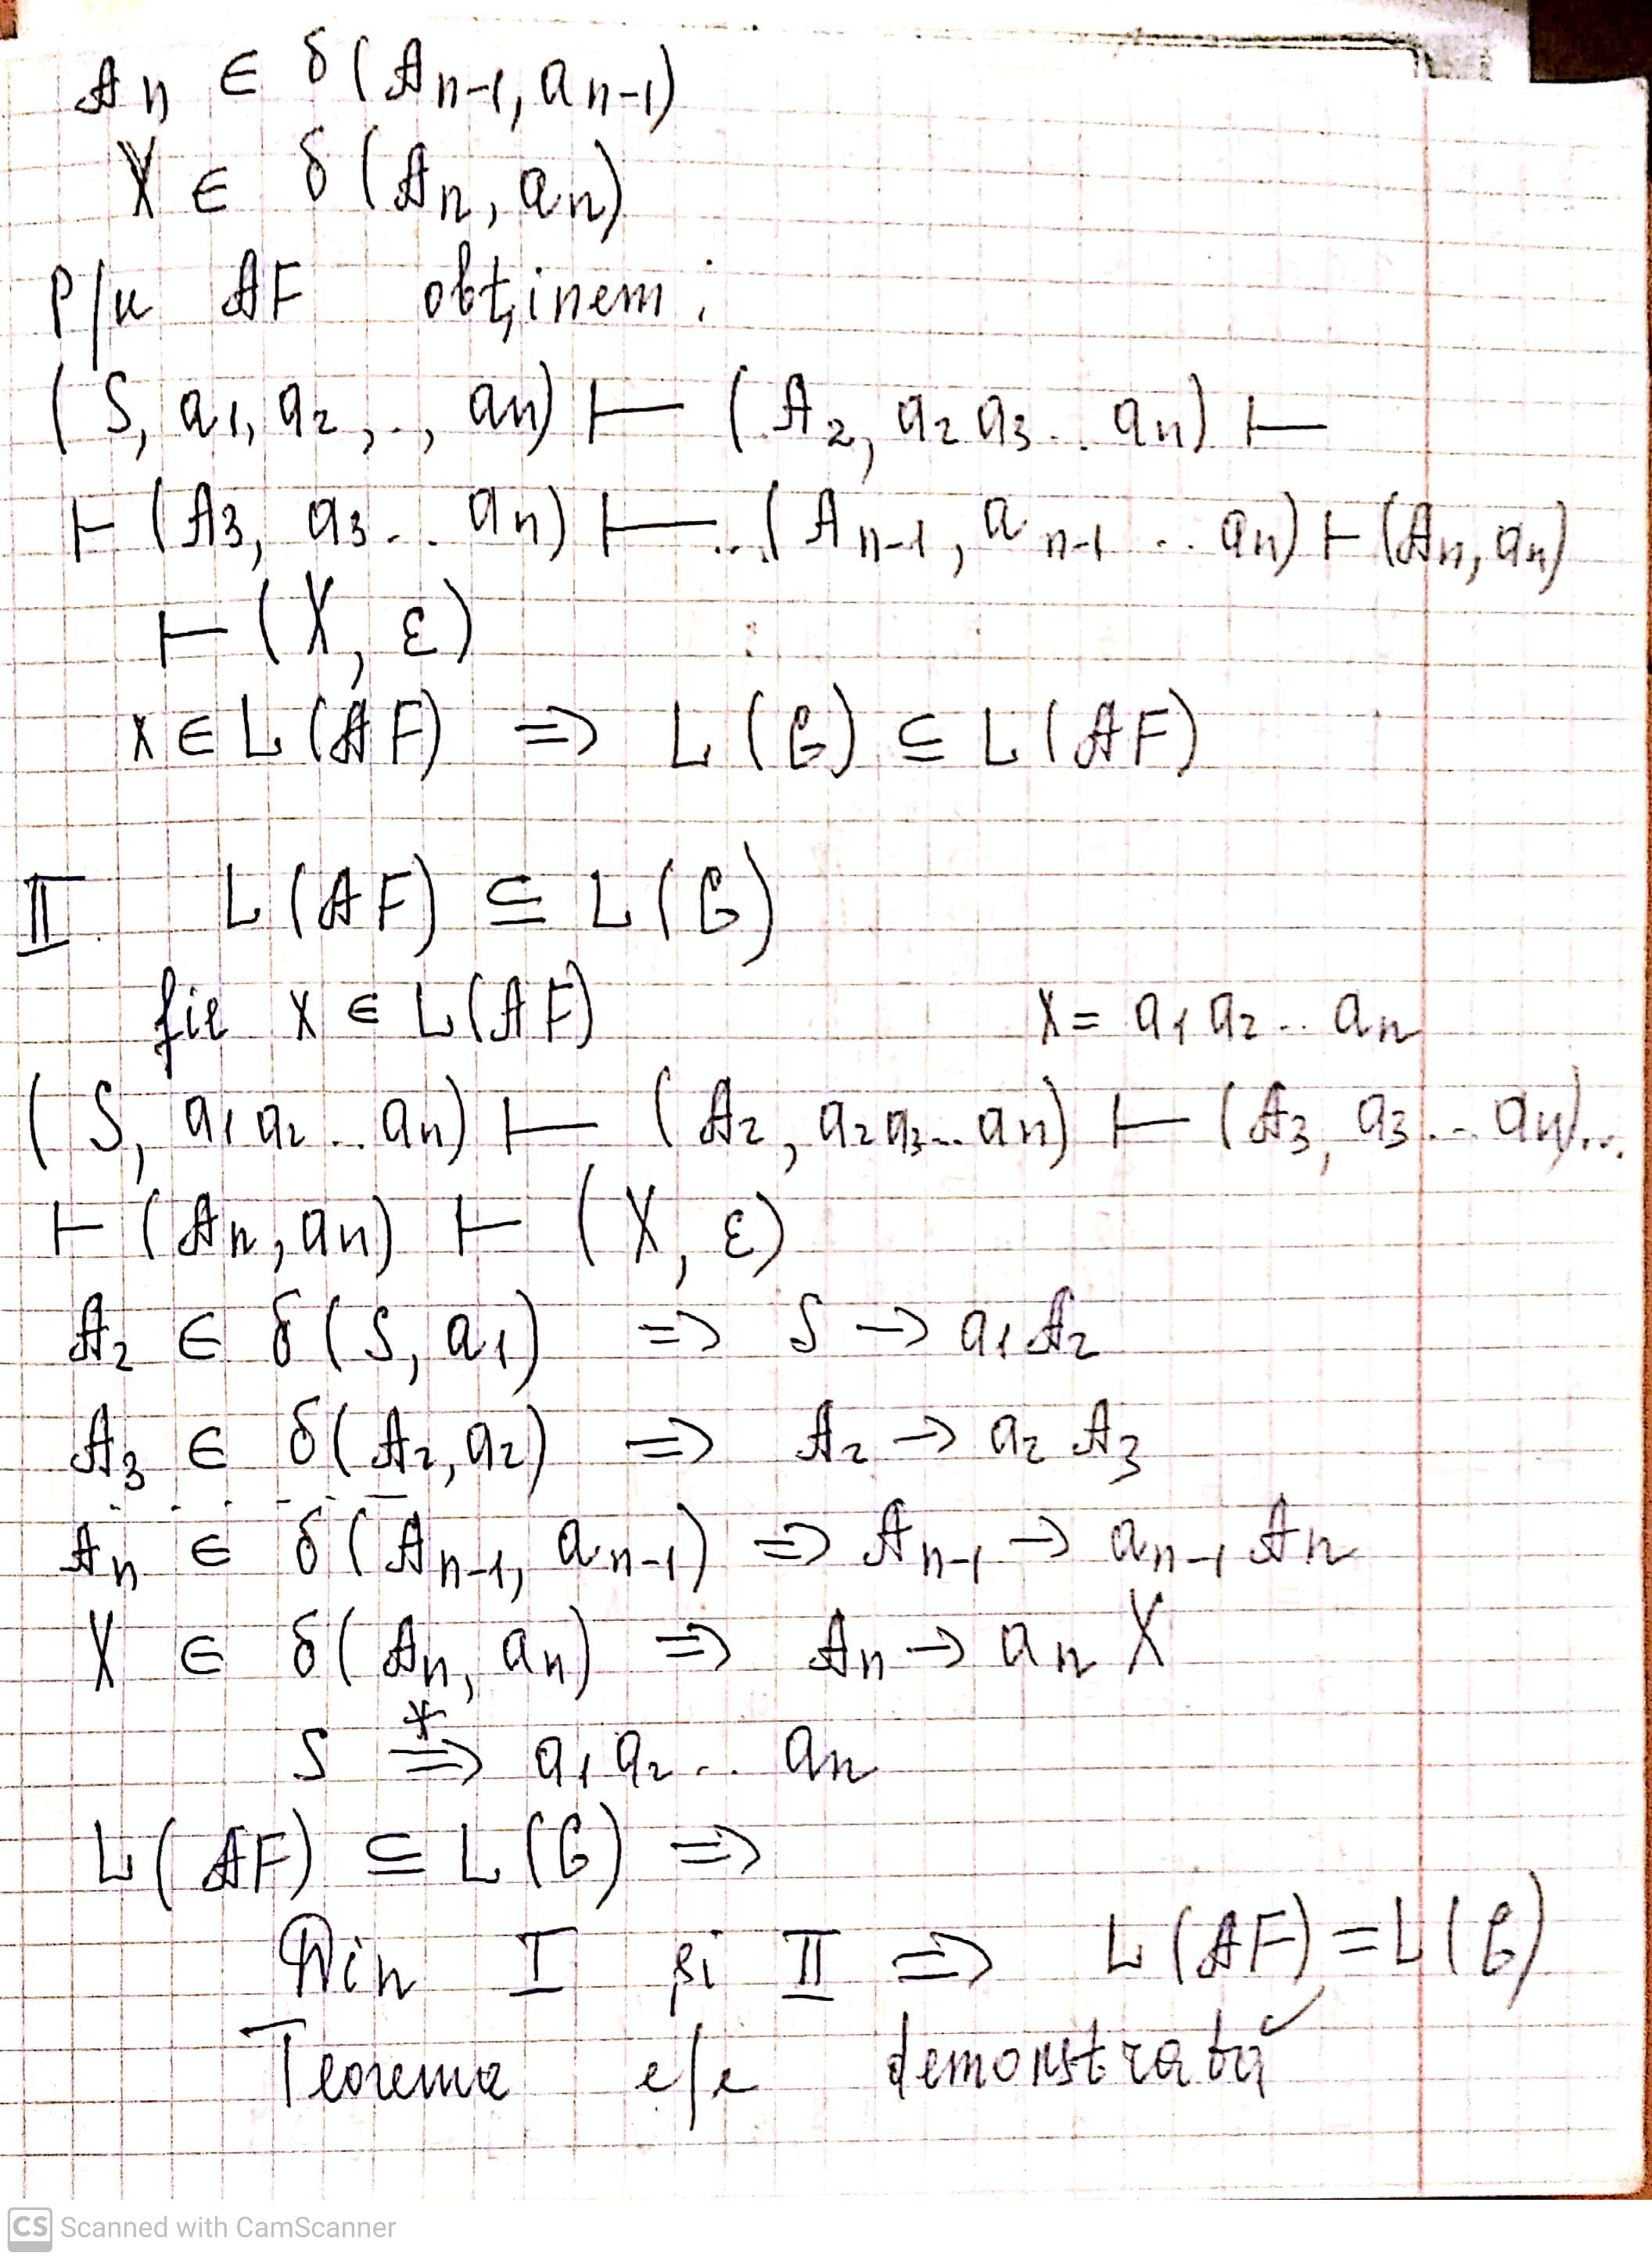 An ∈ δ(An-1, an-1)
X ∈ δ(An, an)
P/u AF obținem:
(S, a1, a2, .., an) ⊢ (A2, a2 a3 .. an) ⊢
⊢ (A3, a3 .. an) ⊢ ... (An-1, an-1 .. an) ⊢ (An, an)
⊢ (X, ε)
x ∈ L(AF) => L(G) ⊆ L(AF)
II. L(AF) ⊆ L(G)
fie x ∈ L(AF) x = a1 a2 .. an
(S, a1 a2 .. an) ⊢ (A2, a2 a3 ... an) ⊢ (A3, a3 ... an)...
⊢ (An, an) ⊢ (X, ε)
A2 ∈ δ(S, a1) => S → a1 A2
A3 ∈ δ(A2, a2) => A2 → a2 A3
- - - - - - -
An ∈ δ(An-1, an-1) => An-1 → an-1 An
X ∈ δ(An, an) => An → an X
S *=> a1 a2 .. an
L(AF) ⊆ L(G) =>
Din I și II => L(AF) = L(G)
Teorema e/e demonstrată
CS Scanned with CamScanner